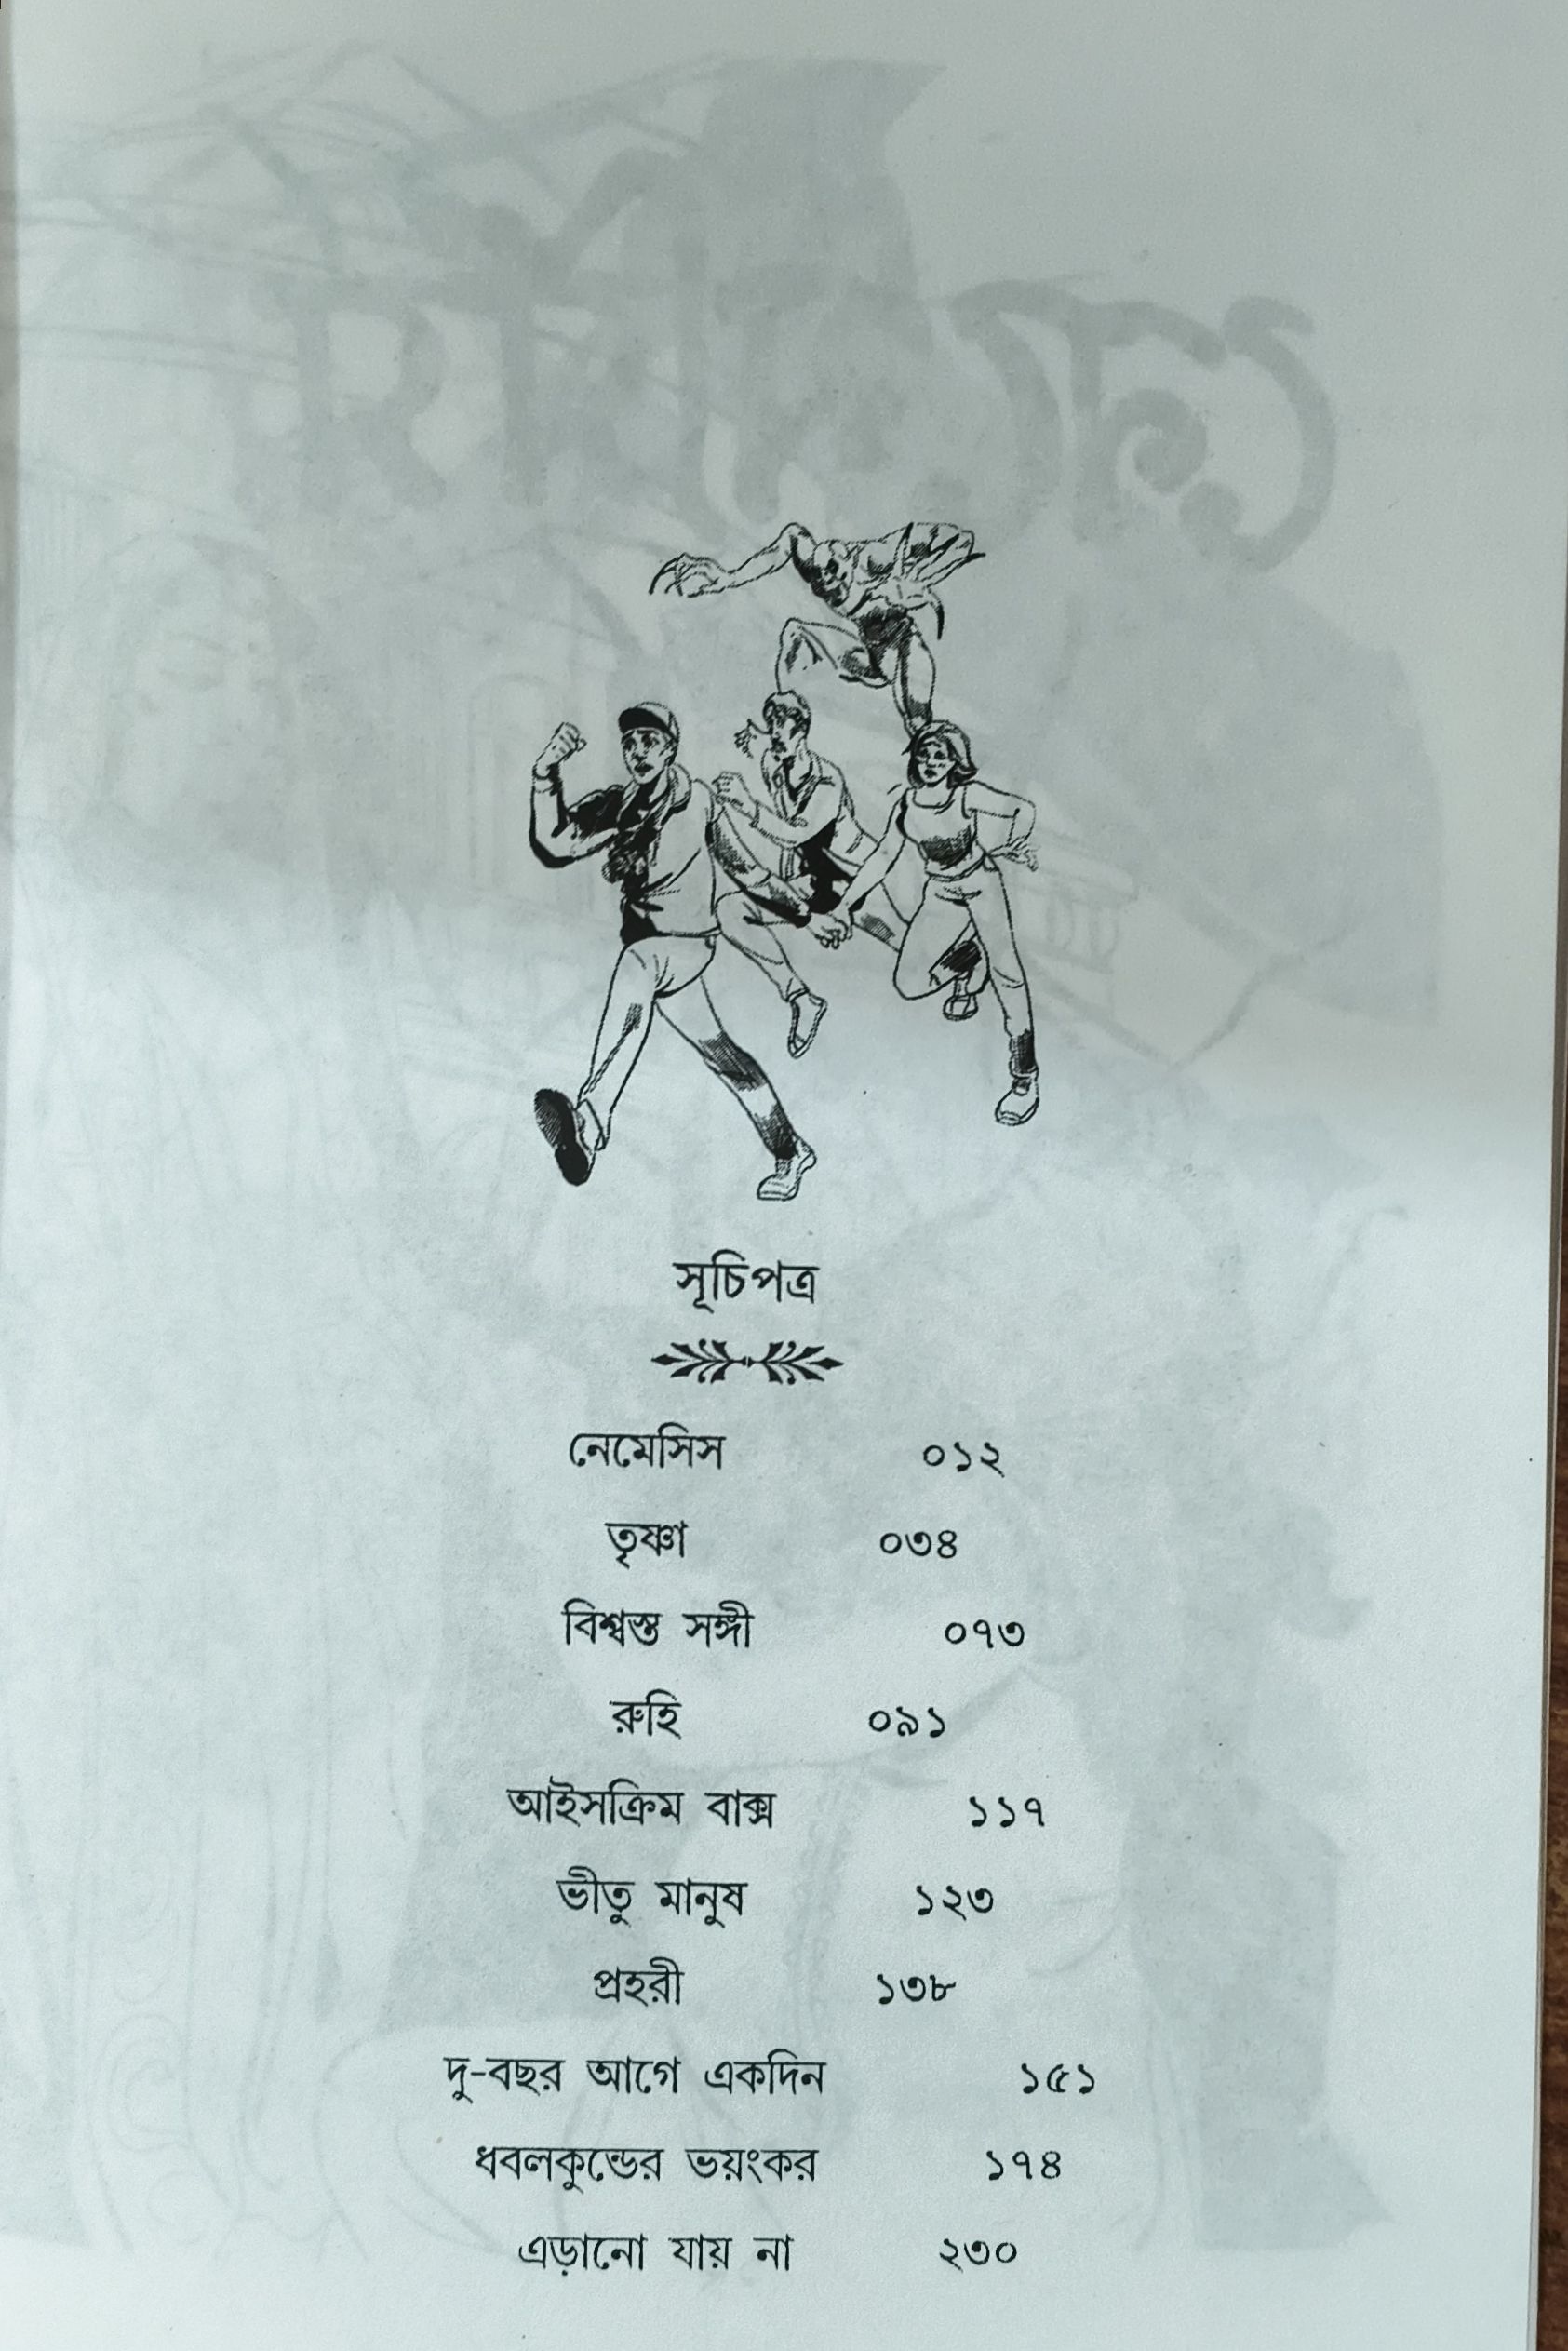 সূচিপত্র
নেমেসিস ০১২
তৃষ্ণা ০৩৪
বিশ্বস্ত সঙ্গী ০৭৩
রুহি ০৯১
আইসক্রিম বাক্স ১১৭
ভীতু মানুষ ১২৩
প্রহরী ১৩৮
দু-বছর আগে একদিন ১৫১
ধবলকুন্ডের ভয়ংকর ১৭৪
এড়ানো যায় না ২৩০